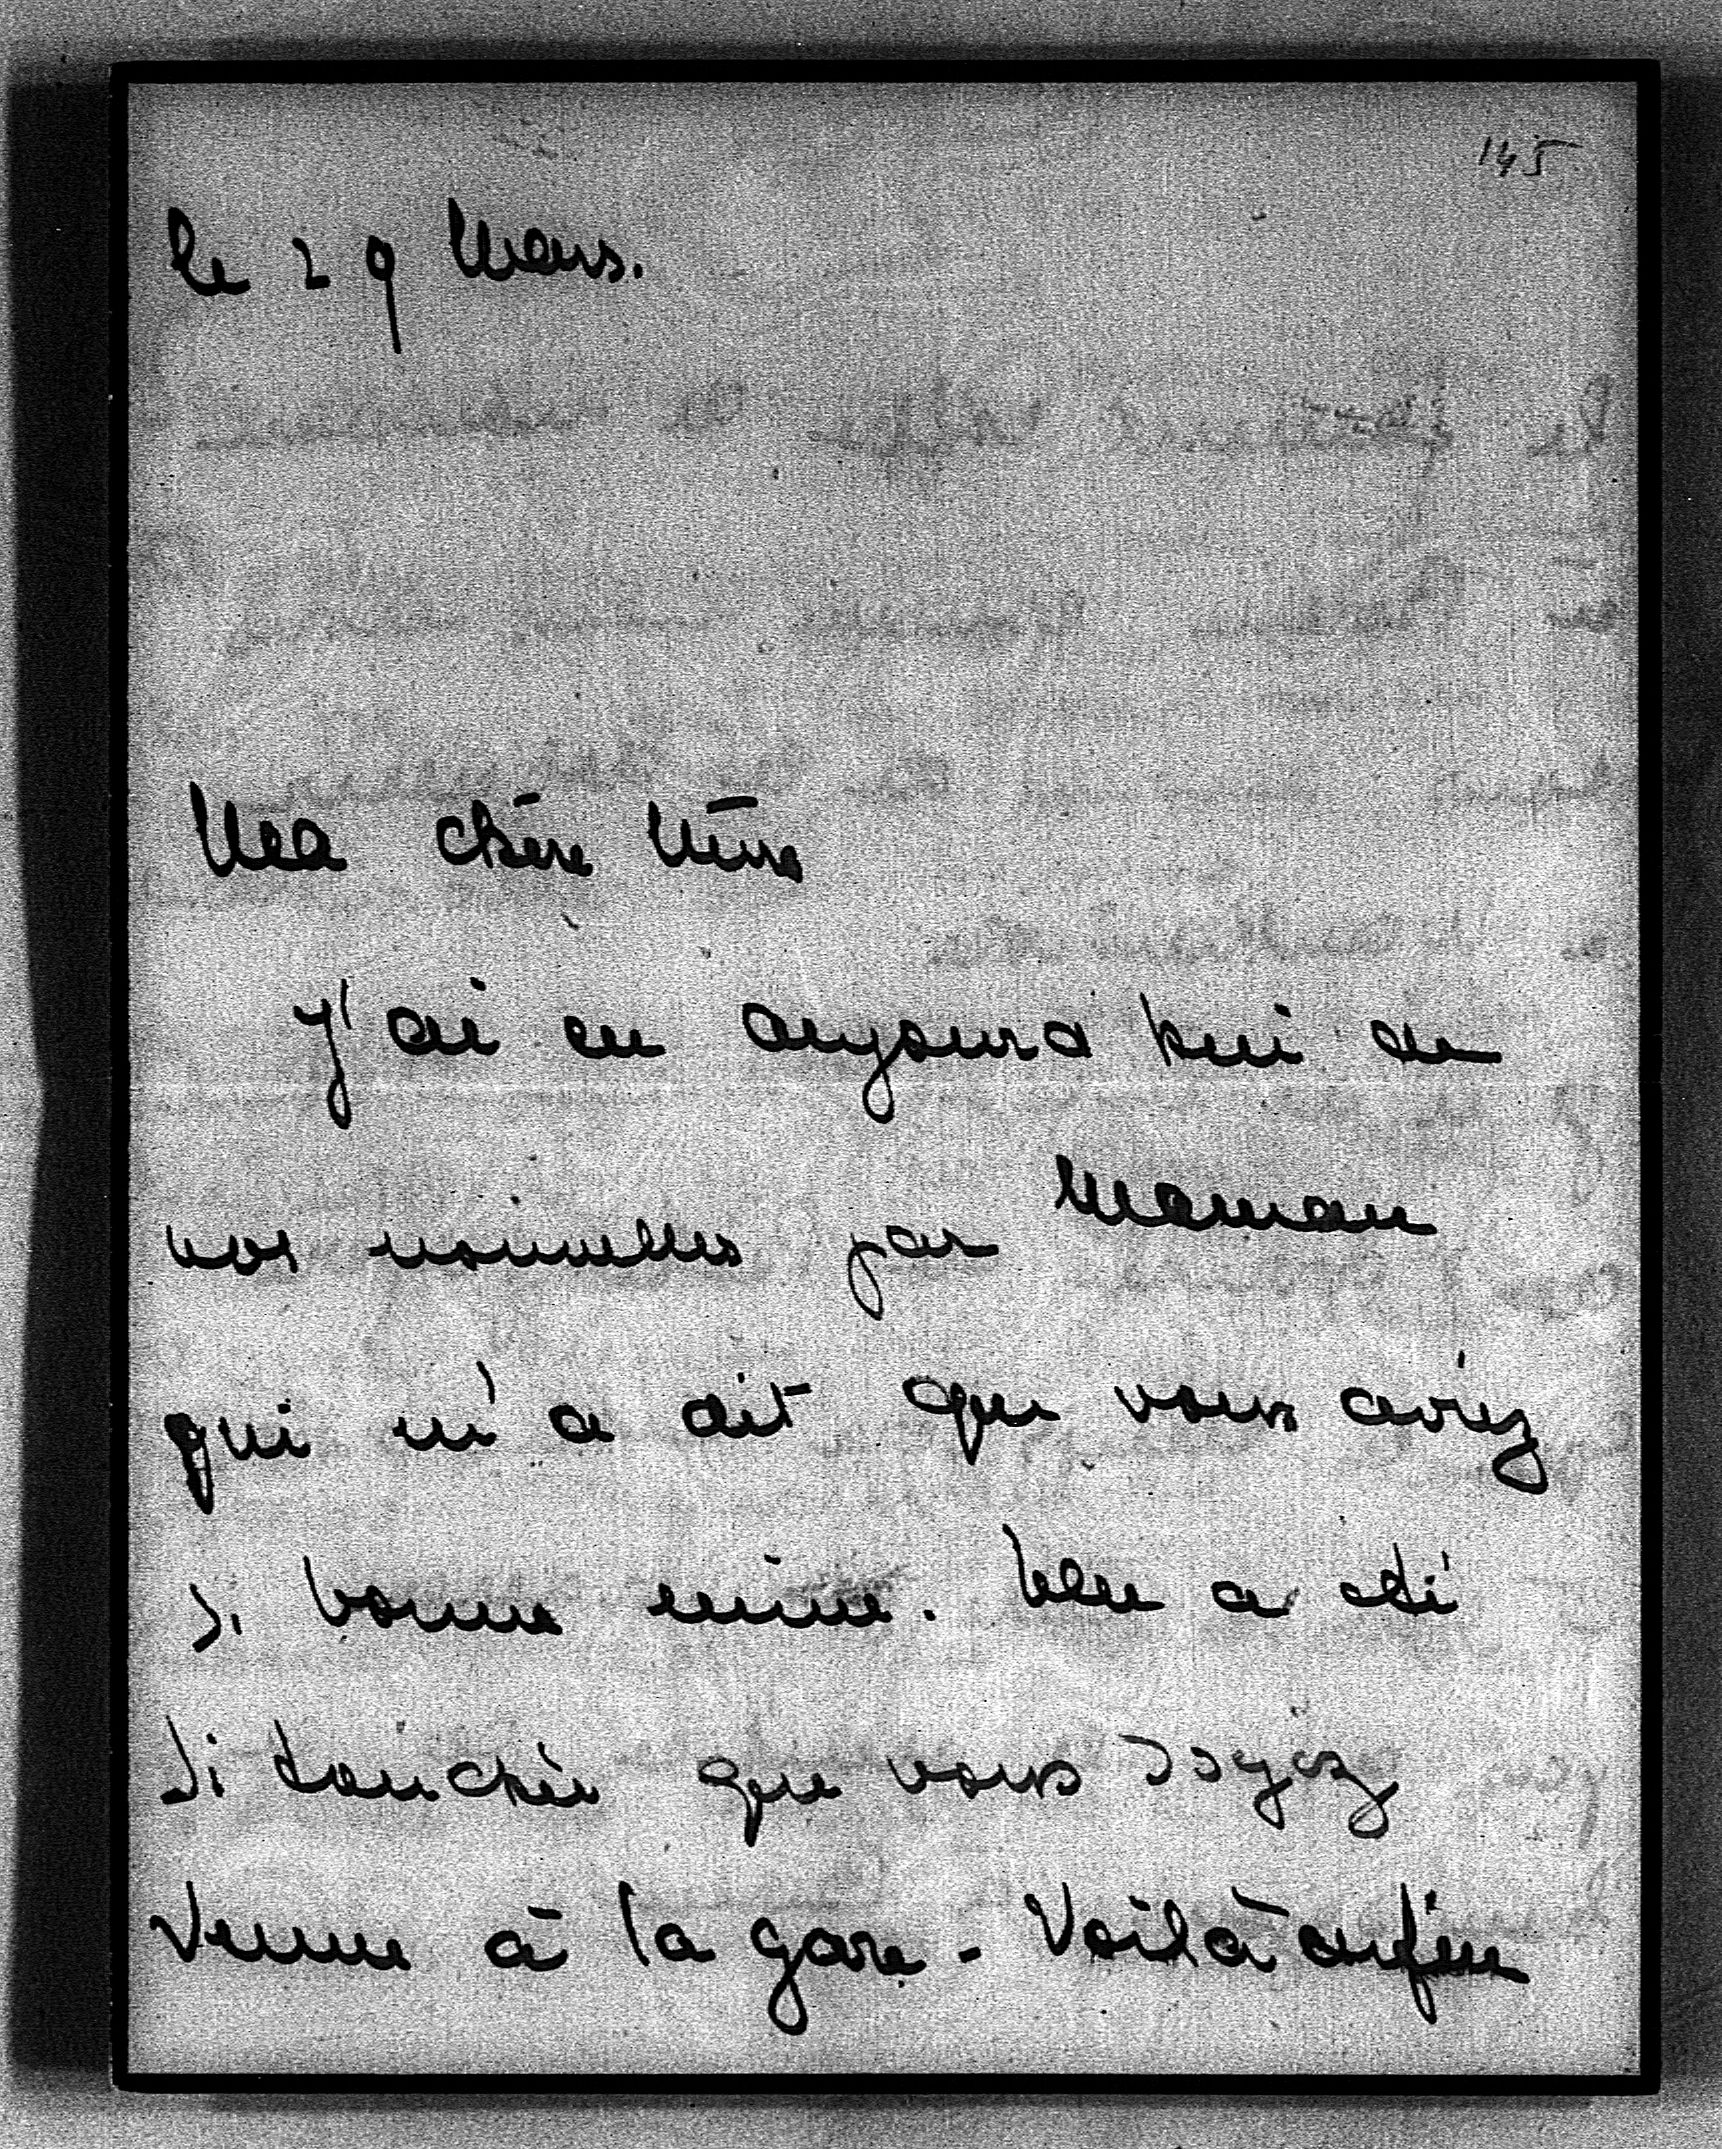 145
le 29 Mars.
Ma chère Mère
J'ai eu aujourd'hui de
vos nouvelles par Maman
qui m'a dit que vous aviez
si bonne mine. Elle a été
si touchée que vous soyez
venue à la gare - Voilà enfin